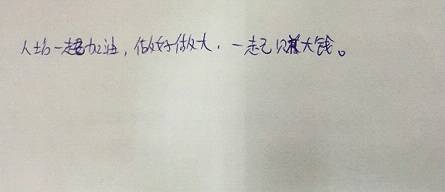 人一起加油，做好做大，一起赚大钱。